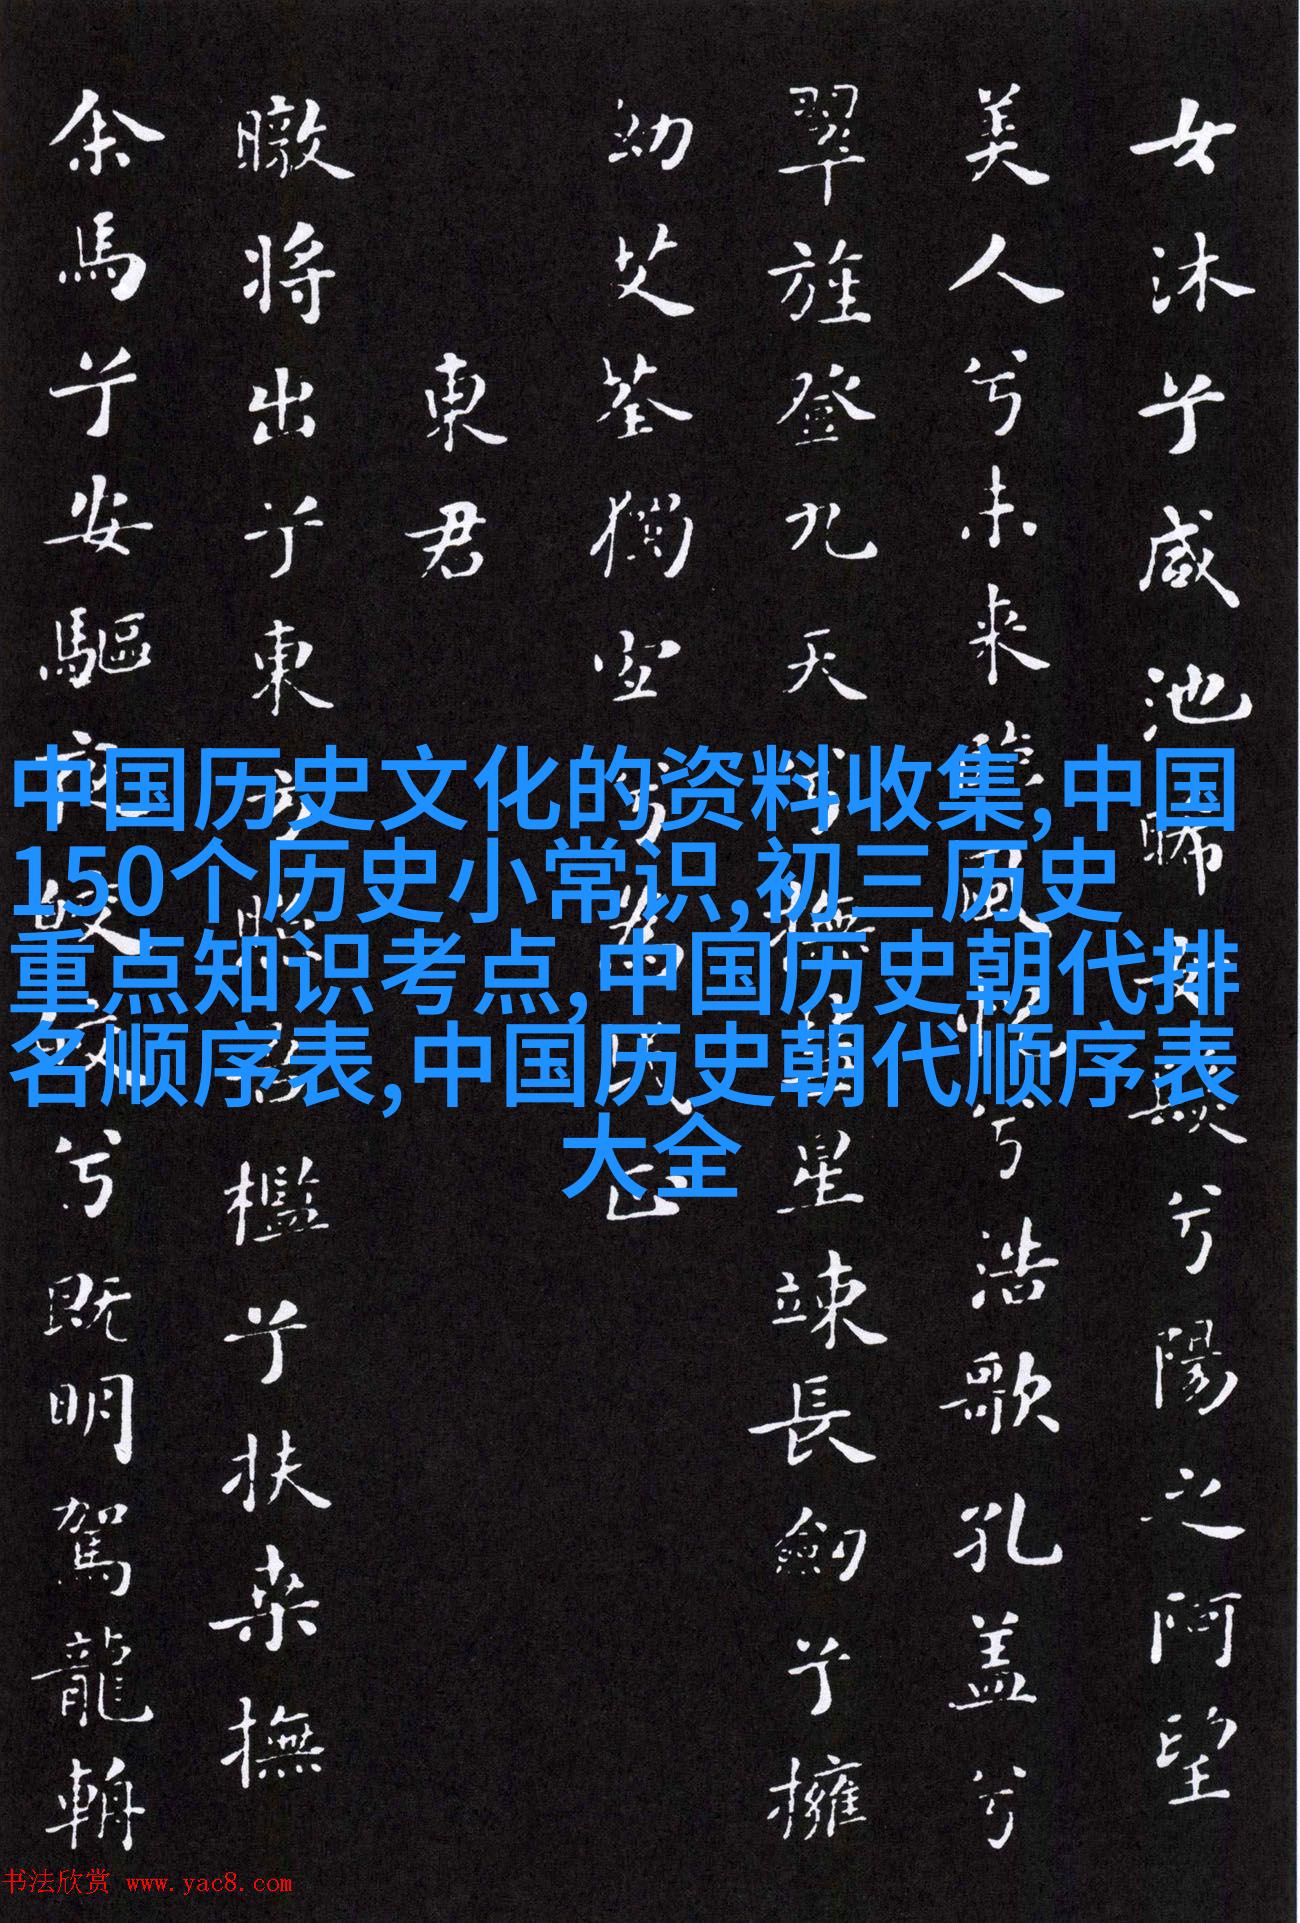 女沐兮咸池晞女髮兮陽之阿望
美人兮未来臨風怳兮浩歌孔盖兮
翠旌登九天兮撫彗星竦長劍兮擁
幼艾荃獨宜兮為民正
東君
暾将出兮東方照吾檻兮扶桑撫
余馬兮安驅夜皎皎兮既明駕龍輈
中国历史文化的资料收集,中国
150个历史小常识,初三历史
重点知识考点,中国历史朝代排
名顺序表,中国历史朝代顺序表
大全
书法欣赏 www.yac8.com